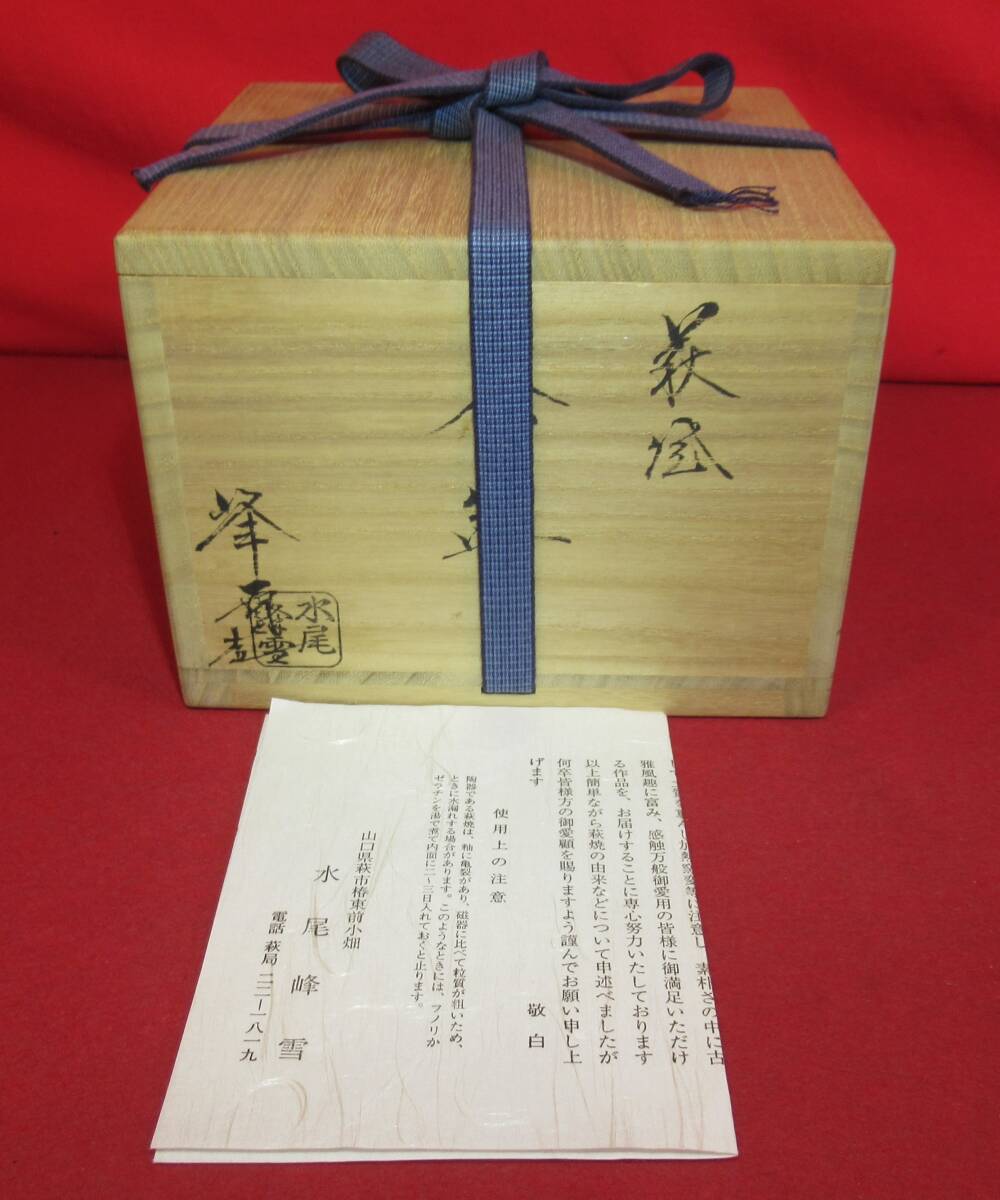 萩焼
峰雪
水尾
峰雪
雅風趣に富み、感触万般御愛用の皆様に御満足いただけ
る作品を、お届けすることに専心努力いたしております
以上簡単ながら萩焼の由来などについて申述べましたが
何卒皆様方の御愛顧を賜りますよう謹んでお願い申し上
げます
敬白
使用上の注意
陶器である萩焼は、釉に亀裂があり、磁器に比べて粒質が粗いため、
ときに水漏れする場合があります。このようなときには、フノリか
ゼラチンを湯で煮て内面に二〜三日入れておくと止ります。
山口県萩市椿東前小畑
水尾峰雪
電話 萩局 二二ー一八一九